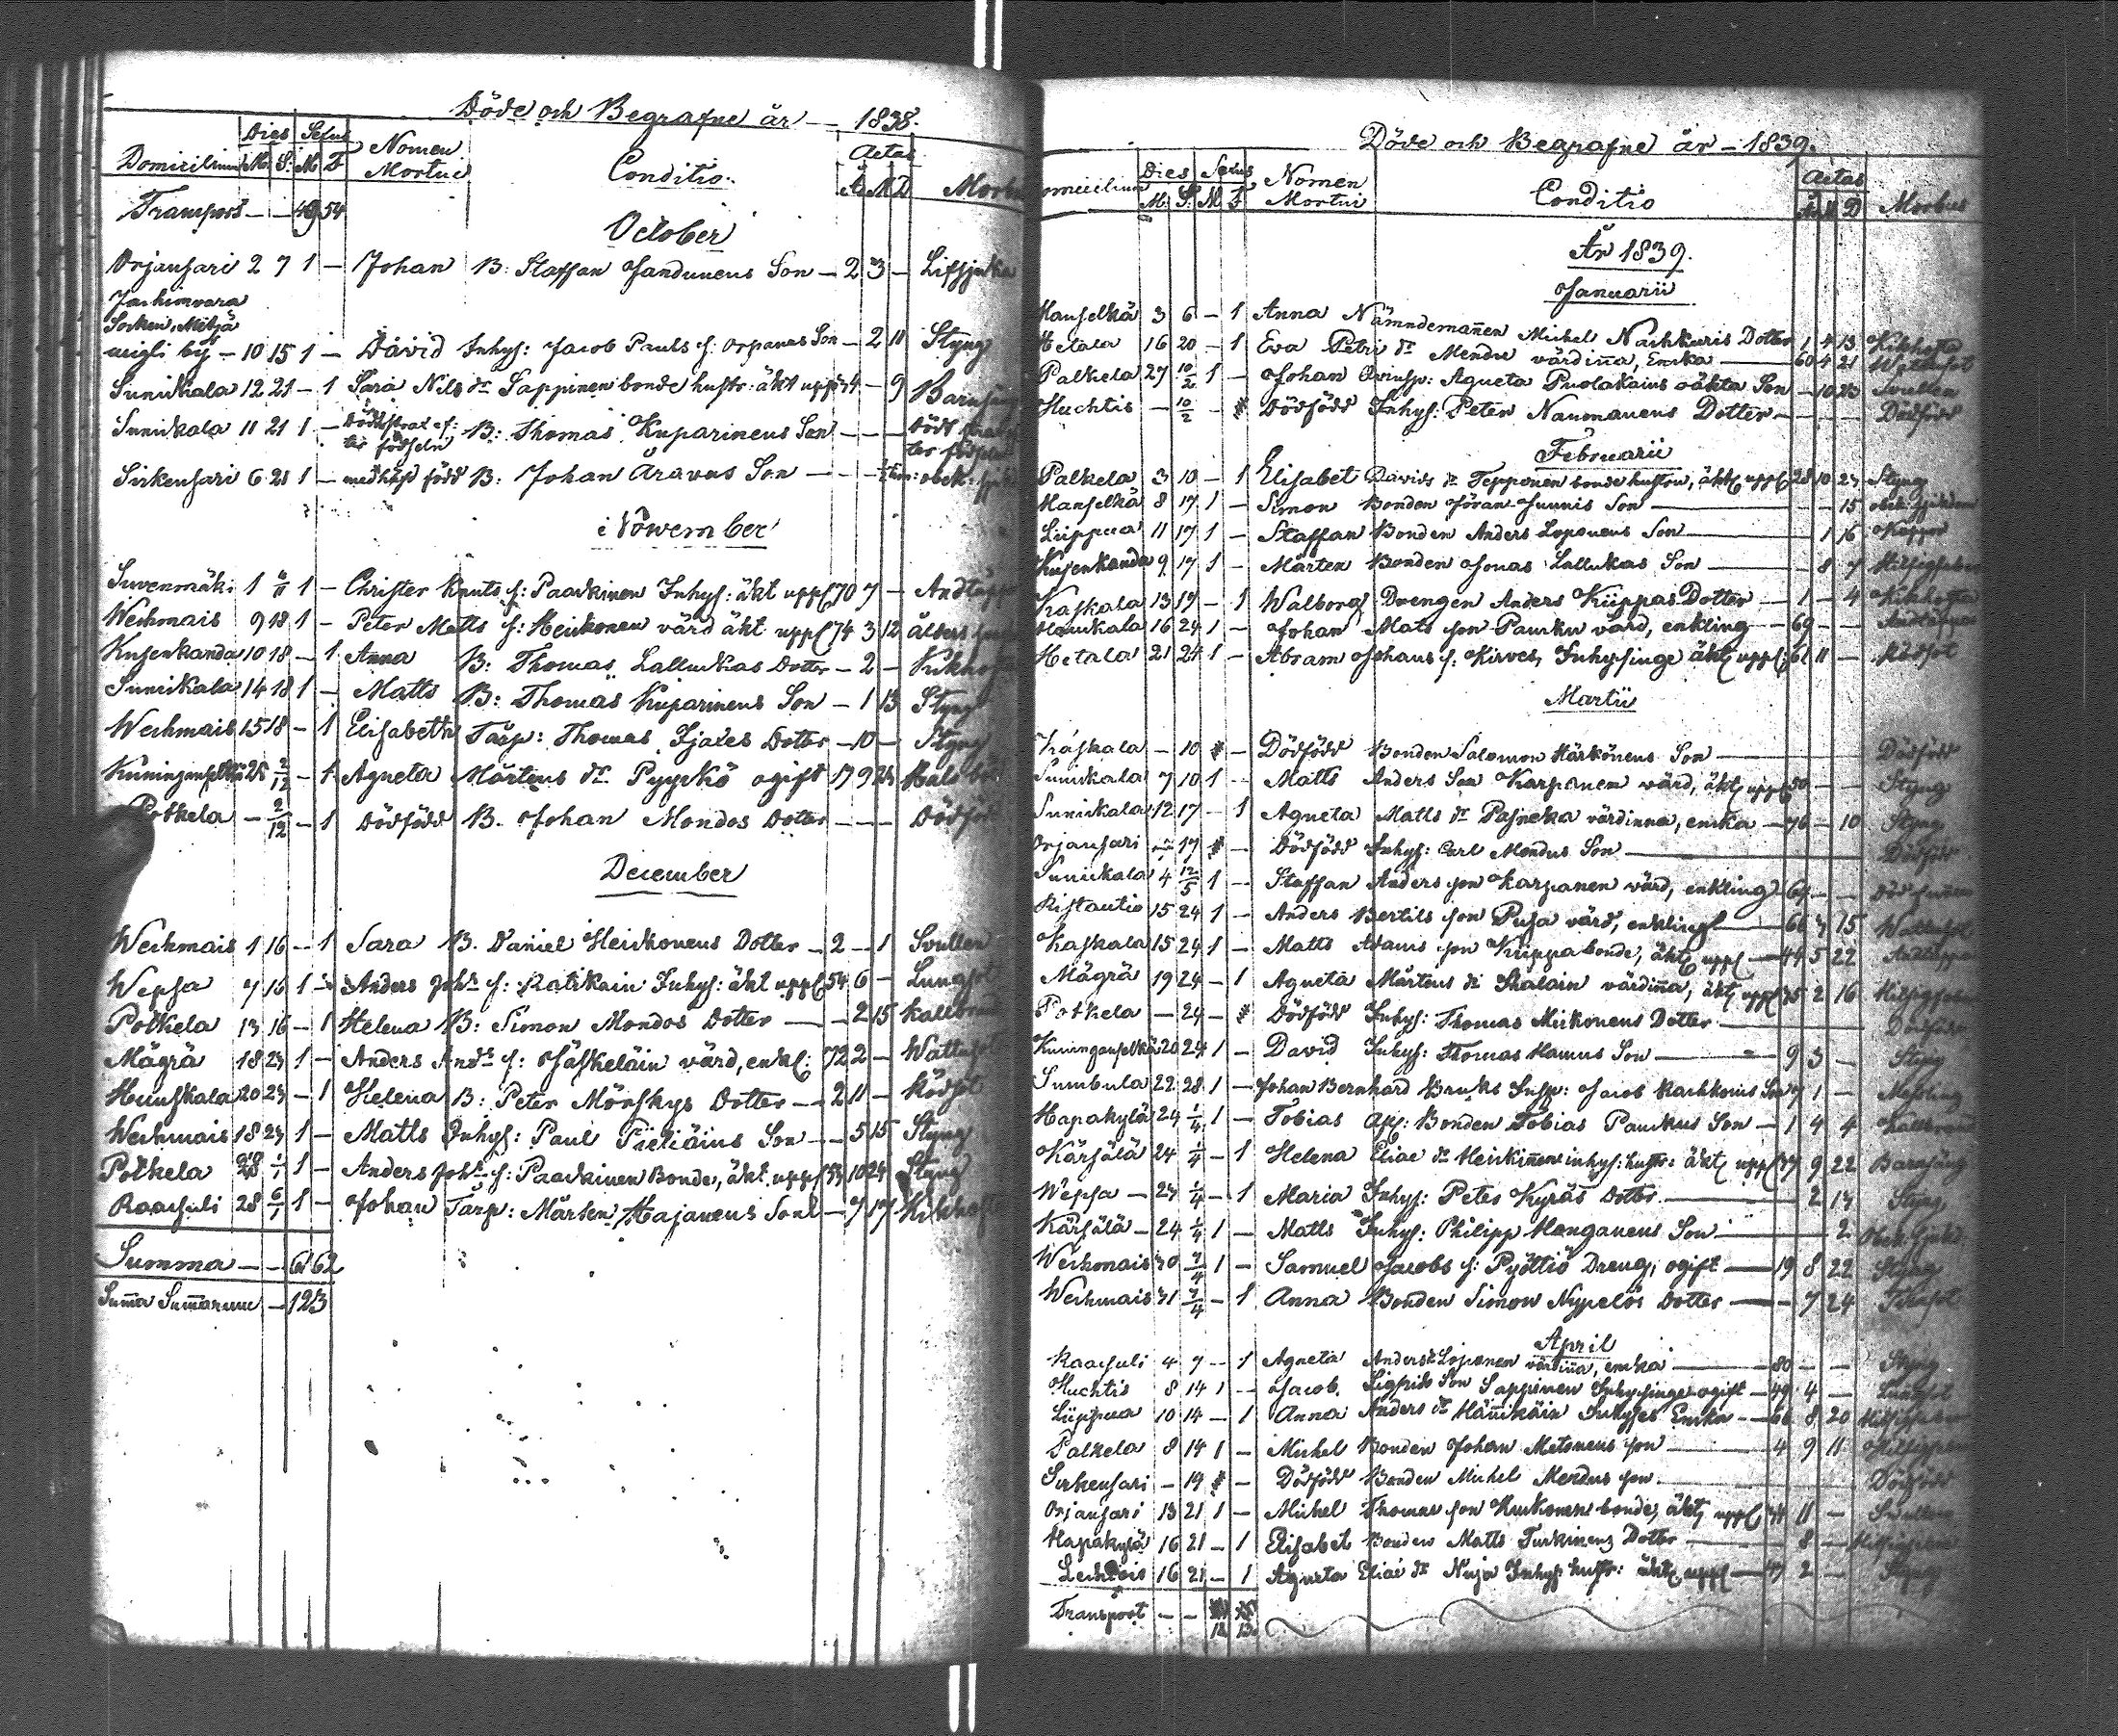 Döde och Begrafne år — 1838.
Domicilium Dies M. S. Sexus M F Nomen Mortui Conditio. Aetas Å M D Morbus
Transport — — 49 54
October
Orjansari 2 7 1 — Johan B: Staffan Jandunens Son — 2 3 —
Jachimvara
Socken, Mitjä
by — 10 15 1 — David Inhys: Jacob Pauls s: Orpanas Son — 2 11 Styng
Sunikala 12 21 — 1 Sara Nils dr Sappinen bonde hustr: äkt upps 34 — 9
Sunikala 11 21 1 — Dödt strax ef:ter födseln B: Thomas Kuparinens Son — — —
Sirkensari 6 21 1 — med håst född B: Johan Äravas Son — —
November
Suvenmäki 1 6/11 1 — Christer Knuts s: Paackinen Inhys: äkt upps 70 7 — Andtäppa
Wechmais 9 18 1 — Peter Matts s: Heickonen värd äkt upps 74 3 12
Kusenkanda 10 18 — 1 Anna B: Thomas Lallukas Dotter — 2 — Kikhosta
Sunikala 14 18 1 — Matts B: Thomas Kuparinens Son — 1 13 Styng
Wechmais 15 18 — 1 Elisabeth Tårp: Thomas Ijäxes Dotter — 10 — Styng
Kuninganselkä 25 2/12 — 1 Agneta Mårtens dr Pyyckö ogift 17 9 23
Potkela — 2/12 — 1 Dödfödd B. Johan Mondos Dotter — — — Dödfödd
December
Wechmais 1 16 — 1 Sara B. Daniel Heickonens Dotter — 2 — 1 Svullen
Wepsa 7 16 1 — Anders Johs s: Ratikain Inhys: äkt upps 54 6 — Lungsot
Potkela 13 16 — 1 Helena B: Simon Mondos Dotter — — 2 15 Kallbrand
Mägrä 18 23 1 — Anders Ands s: Jäskeläin värd, enkl: 72 2 — Wattusot
Huuskala 20 23 — 1 Helena B: Peter Mörskys Dotter — 2 11 — Rödsot
Wechmais 18 23 1 — Matts Inhys: Paul Pietiäins Son — — 5 15 Styng
Potkela 28 1/1 1 — Anders Johs s: Paackinen Bonde, äkt upps 53 10 24 Styng
Raasuli 28 6/1 1 — Johan Tårp: Mårten Hajanens Son — 7 17 Kikhosta
Summa — — 61 62
Summa Summarum — 123
Döde och Begrafne år — 1839.
Domicilium Dies M. S. Sexus M F Nomen Mortui Conditio Aetas År M D Morbus
År 1839.
Januarii
Hanselkä 3 6 — 1 Anna Nämndemannen Michel Nachkuris Dotter 1 4 13 Kikhosta
Hetala 16 20 — 1 Eva Petri dr Mendu värdinna, Encka — 60 4 21
Palkela 27 10/2 1 — Johan Qvinsp: Agneta Puolakains oäkta Son — 10 23 Svullen
Huchtis — 10/2 — Dödfödd Inhys: Peter Naumanens Dotter — Dödfödd
Februarii
Palkela 3 10 — 1 Elisabet Davids dr Tepponen bonde hustru, äkt upps 28 10 23 Styng
Hanselkä 8 17 1 — Simon Bonden Jöran Junnis Son — — 15 obek: sjukdom
Liippua 11 17 1 — Staffan Bonden Anders Loponens Son — 1 16 Koppor
Kusenkanda 9 17 1 — Mårten Bonden Jonas Lallukas Son — 8 7
Kaskala 13 17 — 1 Walborg Drengen Anders Kiippas Dotter — 1 — 4 Kikhosta
Huuskala 16 24 1 — Johan Mats son Paucku värd, enkling — 69 — — Andtäppa
Hetala 21 24 1 — Abram Johans s: Kirves, Inhysinge äkt upps 61 11 — Rödsot
Martii
Kaskala — 10 — Dödfödd Bonden Salomon Härkönens Son — Dödfödd
Sunikala 7 10 1 — Matts Anders Son Karpanen värd, äkt upps 50 — — Styng
Sunikala 12 17 — 1 Agneta Matts dr Pasneka värdinna, encka — 76 — 10 Styng
Orjansari — 17 — Dödfödd Inhys: Carl Mondus Son — Dödfödd
Sunikala 4 12/5 1 — Staffan Anders son Karpanen värd, enkling 67 — —
Ristautio 15 24 1 — Anders Bertils son Pusa värd, enkling — 66 7 15 Wattusot
Kaskala 15 24 1 — Matts Adams son Kiippa bonde, äkt upps — 44 5 22 Andtäppa
Mägrä 19 24 — 1 Agneta Mårtens dr Skalain värdinna, äkt upps 75 2 16
Potkela — 24 — Dödfödd Inhys: Thomas Mickonens Dotter — Dödfödd
Kuninganselkä 20 24 1 — David Inhys: Thomas Hamus Son — 9 3 — Styng
Sumbula 22 28 1 — Johan Bernhard Bruks Insp: Jacob Rachkonis Son 7 1 — Messling
Hapakylä 24 1/4 1 — Tobias Afs: Bonden Tobias Pauckus Son — 1 4 4 Kallbrand
Kärsälä 24 1/4 — 1 Helena Eliae dr Heickinen inhys: hustr: äkt upps 37 9 22 Barnsäng
Wepsa — 23 1/4 — 1 Maria Inhys: Peter Kyräs Dotter — 2 13 Styng
Kärsälä — 24 1/4 1 — Matts Inhys: Philipp Manganens Son — 2 Obek. Sjukd:
Wechmais 30 7/4 1 — Samuel Jacobs s: Pyöttiö Dreng, ogift — 19 8 22 Styng
Wechmais 31 7/4 — 1 Anna Bonden Simon Nypelös Dotter — — 7 24
April
Raasuli 4 7 — 1 Agneta Anders dr Loponen värdinna, encka — 80 — — Styng
Huchtis 8 14 1 — Jacob Sigfrids Son Sappinen Inhysinge ogift — 49 4 — Lungsot
Liippua 10 14 — 1 Anna Anders dr Hännikäin Inhyses Encka — 66 8 20
Palkela 8 14 1 — Michel Bonden Johan Metsonens son — 4 9 11
Sirkensari — 14 — Dödfödd Bonden Michel Mendus son — Dödfödd
Orjansari 13 21 1 — Michel Thomas son Kurkonen bonde, äkt upps 44 11 — Svullen
Hapakylä 16 21 — 1 Elisabet Bonden Matts Turkinens Dotter — 8 —
Lechtois 16 21 — 1 Agneta Eliae dr Nuija Inhys hustr: äkt upps — 47 2 — Styng
Transport — — 18 13